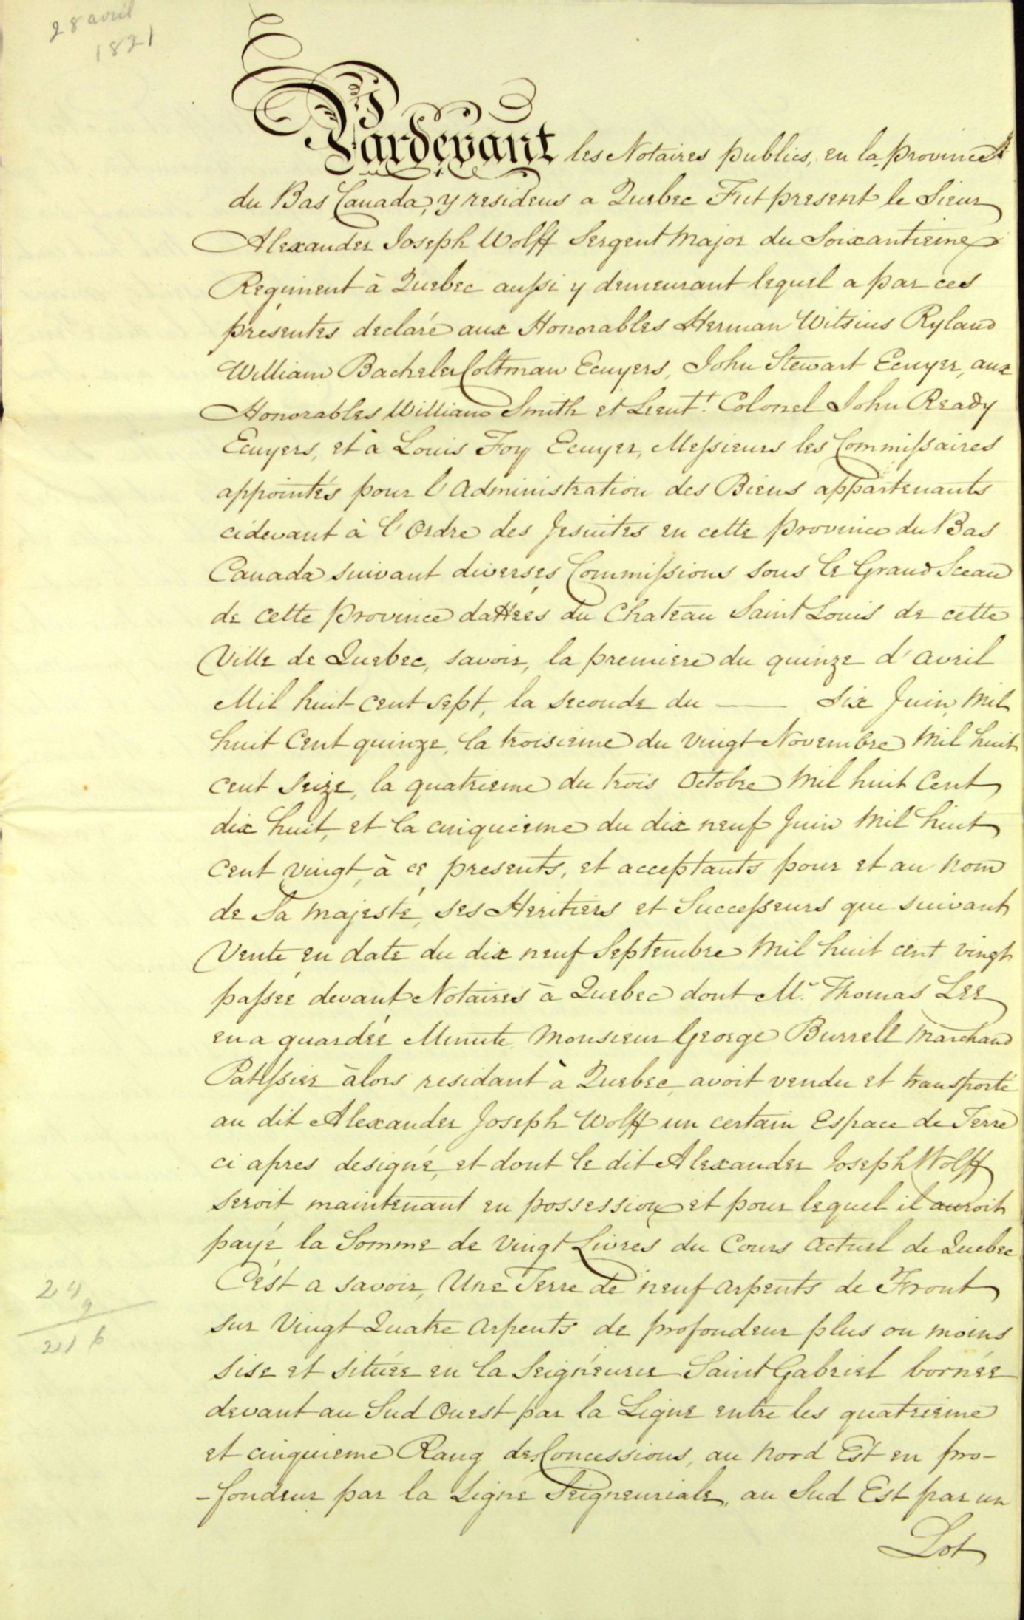 28 avril
1821
Pardevant les Notaires publics, en la province
du Bas Canada, y residens a Quebec Fut present le Sieur
Alexander Joseph Wolff Sergent Major du Soixantieme
Regiment à Quebec aussi y demeurant lequel a par ces
présentes declaré aux Honorables Herman Witsius Ryland
William Bacheler Coltman Ecuyers, John Stewart Ecuyer, aux
Honorables William Smith et Lieut.t Colonel John Ready
Ecuyers, et à Louis Foy Ecuyer, Messieurs les Commissaires
appointés pour l'Administration des Biens appartenants
cidevant à l'Ordre des Jesuites en cette province du Bas
Canada suivant diverses Commissions sous le Grand Sceau
de cette province dattées du Chateau Saint Louis de cette
Ville de Quebec, savoir, la premiere du quinze d'avril
Mil huit cent sept, la seconde du —— six Juin Mil
huit Cent quinze, la troisieme du vingt Novembre Mil huit
cent seize, la quatrieme du trois Octobre Mil huit Cent
dix huit, et la cinquieme du dix neuf Juin Mil huit
cent vingt, à ce presents, et acceptants pour et au nom
de Sa Majesté, ses Heritiers et Successeurs que suivant
Vente en date du dix neuf Septembre Mil huit cent vingt
passée devant Notaires à Quebec dont M.r Thomas Lee
en a guardée Minute Monsieur George Burrell Marchand
Patissier àlors residant à Quebec, avoit vendu et transporté
au dit Alexander Joseph Wolff un certain Espace de Terre
ci apres designé, et dont le dit Alexander Joseph Wolff
seroit maintenant en possession et pour lequel il auroit
payé la Somme de Vingt Livres du Cours Actuel de Quebec
C'est a savoir, Une Terre de neuf arpents de Front
sur Vingt Quatre Arpents de profondeur plus ou moins
sise et située en la Seigneurie Saint Gabriel bornée
devant au Sud Ouest par la Ligne entre les quatrieme
et cinquieme Rang des Concessions, au Nord Est en pro-
-fondeur par la Ligne Seigneuriale, au Sud Est par un
Lot
24
9